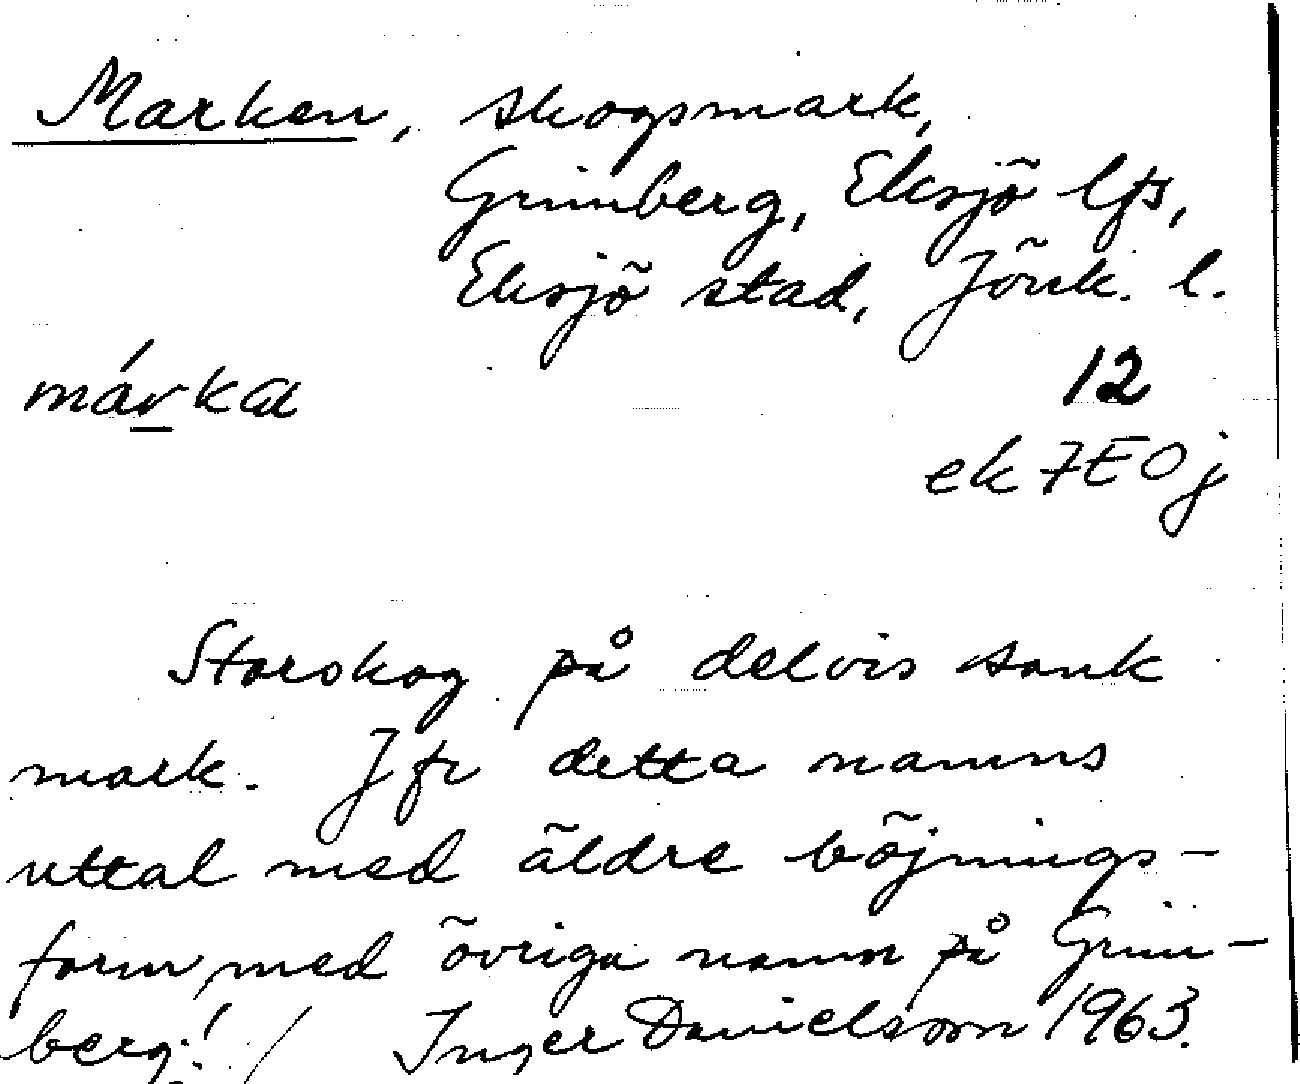 Marken, skogsmark,
Grinberg, Eksjö lfs,
Eksjö stad, Jönk. l.
márka
12
ek 7E0j
Storskog på delvis sank
mark. Jfr detta namns
uttal med äldre böjnings-
form med övriga namn på Grin-
berg! / Inger Danielsson 1963.